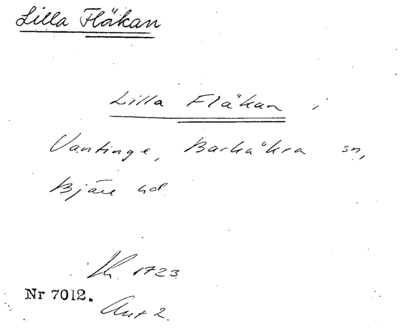 Lilla Fläkan
Lilla Fläkan i
Vantinge, Barkåkra sn,
Bjäre hd
1723
Nr 7012.
Akt 2.